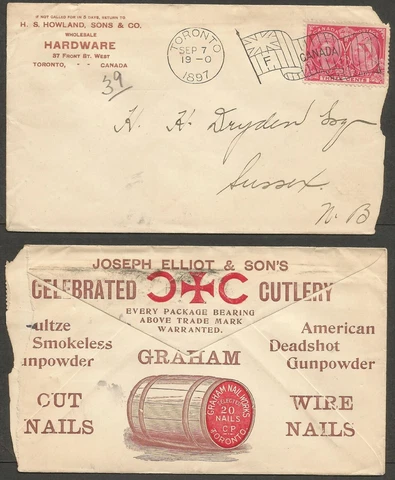 IF NOT CALLED FOR IN 5 DAYS, RETURN TO
H. S. HOWLAND, SONS & CO.
WHOLESALE
HARDWARE
37 FRONT ST. WEST
TORONTO, - - CANADA
39
TORONTO
SEP 7
19-0
1897
F
CANADA
CANADA POSTAGE
THREE CENTS
H. H. Dryden Esq
Sussex
N. B
JOSEPH ELLIOT & SON'S
CELEBRATED C C CUTLERY
EVERY PACKAGE BEARING
ABOVE TRADE MARK
WARRANTED.
ultze
Smokeless
unpowder
American
Deadshot
Gunpowder
GRAHAM
CUT
NAILS
WIRE
NAILS
GRAHAM NAIL WORKS
20
NAILS
TORONTO